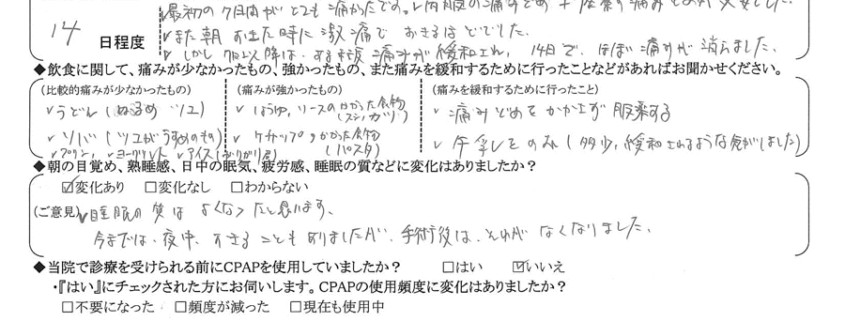 最初の7日間がとても痛かったです。
14 日程度
✓また朝おきた時に激痛でおきるほどでした。
✓しかし7日以降は、ある程度痛すが緩和され、14日で、ほぼ痛すが消えました。
◆飲食に関して、痛みが少なかったもの、強かったもの、また痛みを緩和するために行ったことなどがあればお聞かせください。
(比較的痛みが少なかったもの)
✓うどん(ぬるめ ツユ)
✓ソバ(ツユがうすめのもの)
✓プリン、✓ヨーグルト ✓アイス
(痛みが強かったもの)
✓しょうゆ、ソースのかかった食物
✓ケチャップのかかった食物
(パスタ)
(痛みを緩和するために行ったこと)
✓痛みどめをかかさず服薬する
✓牛乳をのみ(多少、緩和されるような気がしました)
◆朝の目覚め、熟睡感、日中の眠気、疲労感、睡眠の質などに変化はありましたか?
☑変化あり □変化なし □わからない
(ご意見)✓睡眠の質はよくなったと思います、
今までは、夜中、おきることもありましたが、手術後は、それがなくなりました、
◆当院で診療を受けられる前にCPAPを使用していましたか? □はい ☑いいえ
・『はい』にチェックされた方にお伺いします。CPAPの使用頻度に変化はありましたか?
□不要になった □頻度が減った □現在も使用中